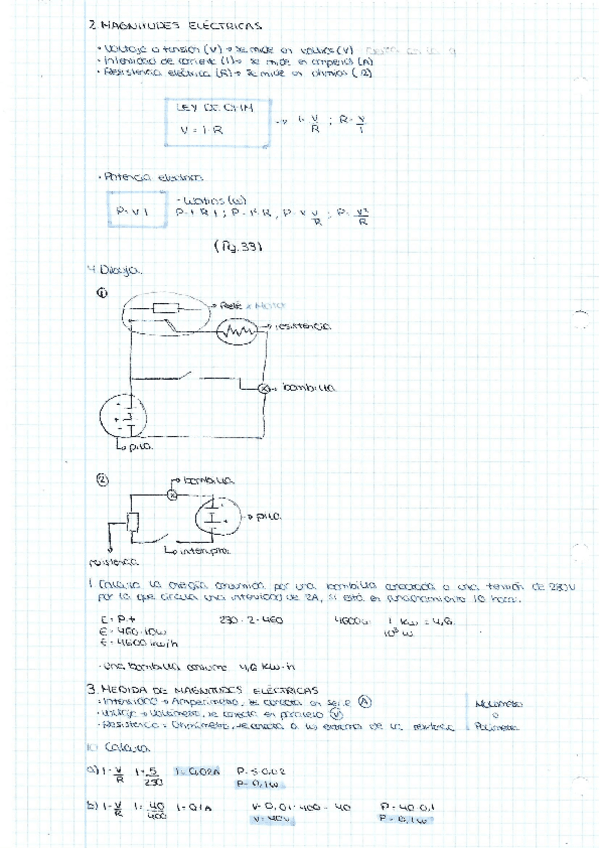 2 MAGNITUDES ELÉCTRICAS
• Voltaje o tensión (V) → se mide en voltios (V)
• Intensidad de corriente (I) → se mide en amperios (A)
• Resistencia eléctrica (R) → se mide en ohmios (Ω)
LEY DE OHM
V = I · R → I = V/R ; R = V/I
• Potencia eléctrica
- Watios (W)
P = V · I P = I · R · I ; P = I² · R , P = V · V/R ; P = V²/R
(Pg. 33)
4. Dibuja.
①
→ Relé
→ resistencia
→ bombilla
→ pila
②
→ bombilla
→ pila
→ interruptor
resistencia
1. Calcula la energía consumida por una bombilla conectada a una tensión de 230V
por la que circula una intensidad de 2A, si está en funcionamiento 10 horas.
E = P · t 230 · 2 = 460 4600w · 1 kw / 10³ w = 4,6
E = 460 · 10w
E = 4600 kw/h
- Una bombilla consume 4,6 kw·h
3. MEDIDA DE MAGNITUDES ELÉCTRICAS
- Intensidad → Amperímetro, se conecta en serie Ⓐ
- Voltaje → Voltímetro, se conecta en paralelo Ⓥ
- Resistencia → Ohmímetro, se conecta a los extremos de la resistencia
o
Polímetro
10 Calcula
a) I = V/R I = 5/230 I = 0,02A P = 5 · 0,02
P = 0,1w
b) I = V/R I = 40/400 I = 0,1A V = 0,01 · 400 = 40 P = 40 · 0,1
V = 40v P = 0,1w